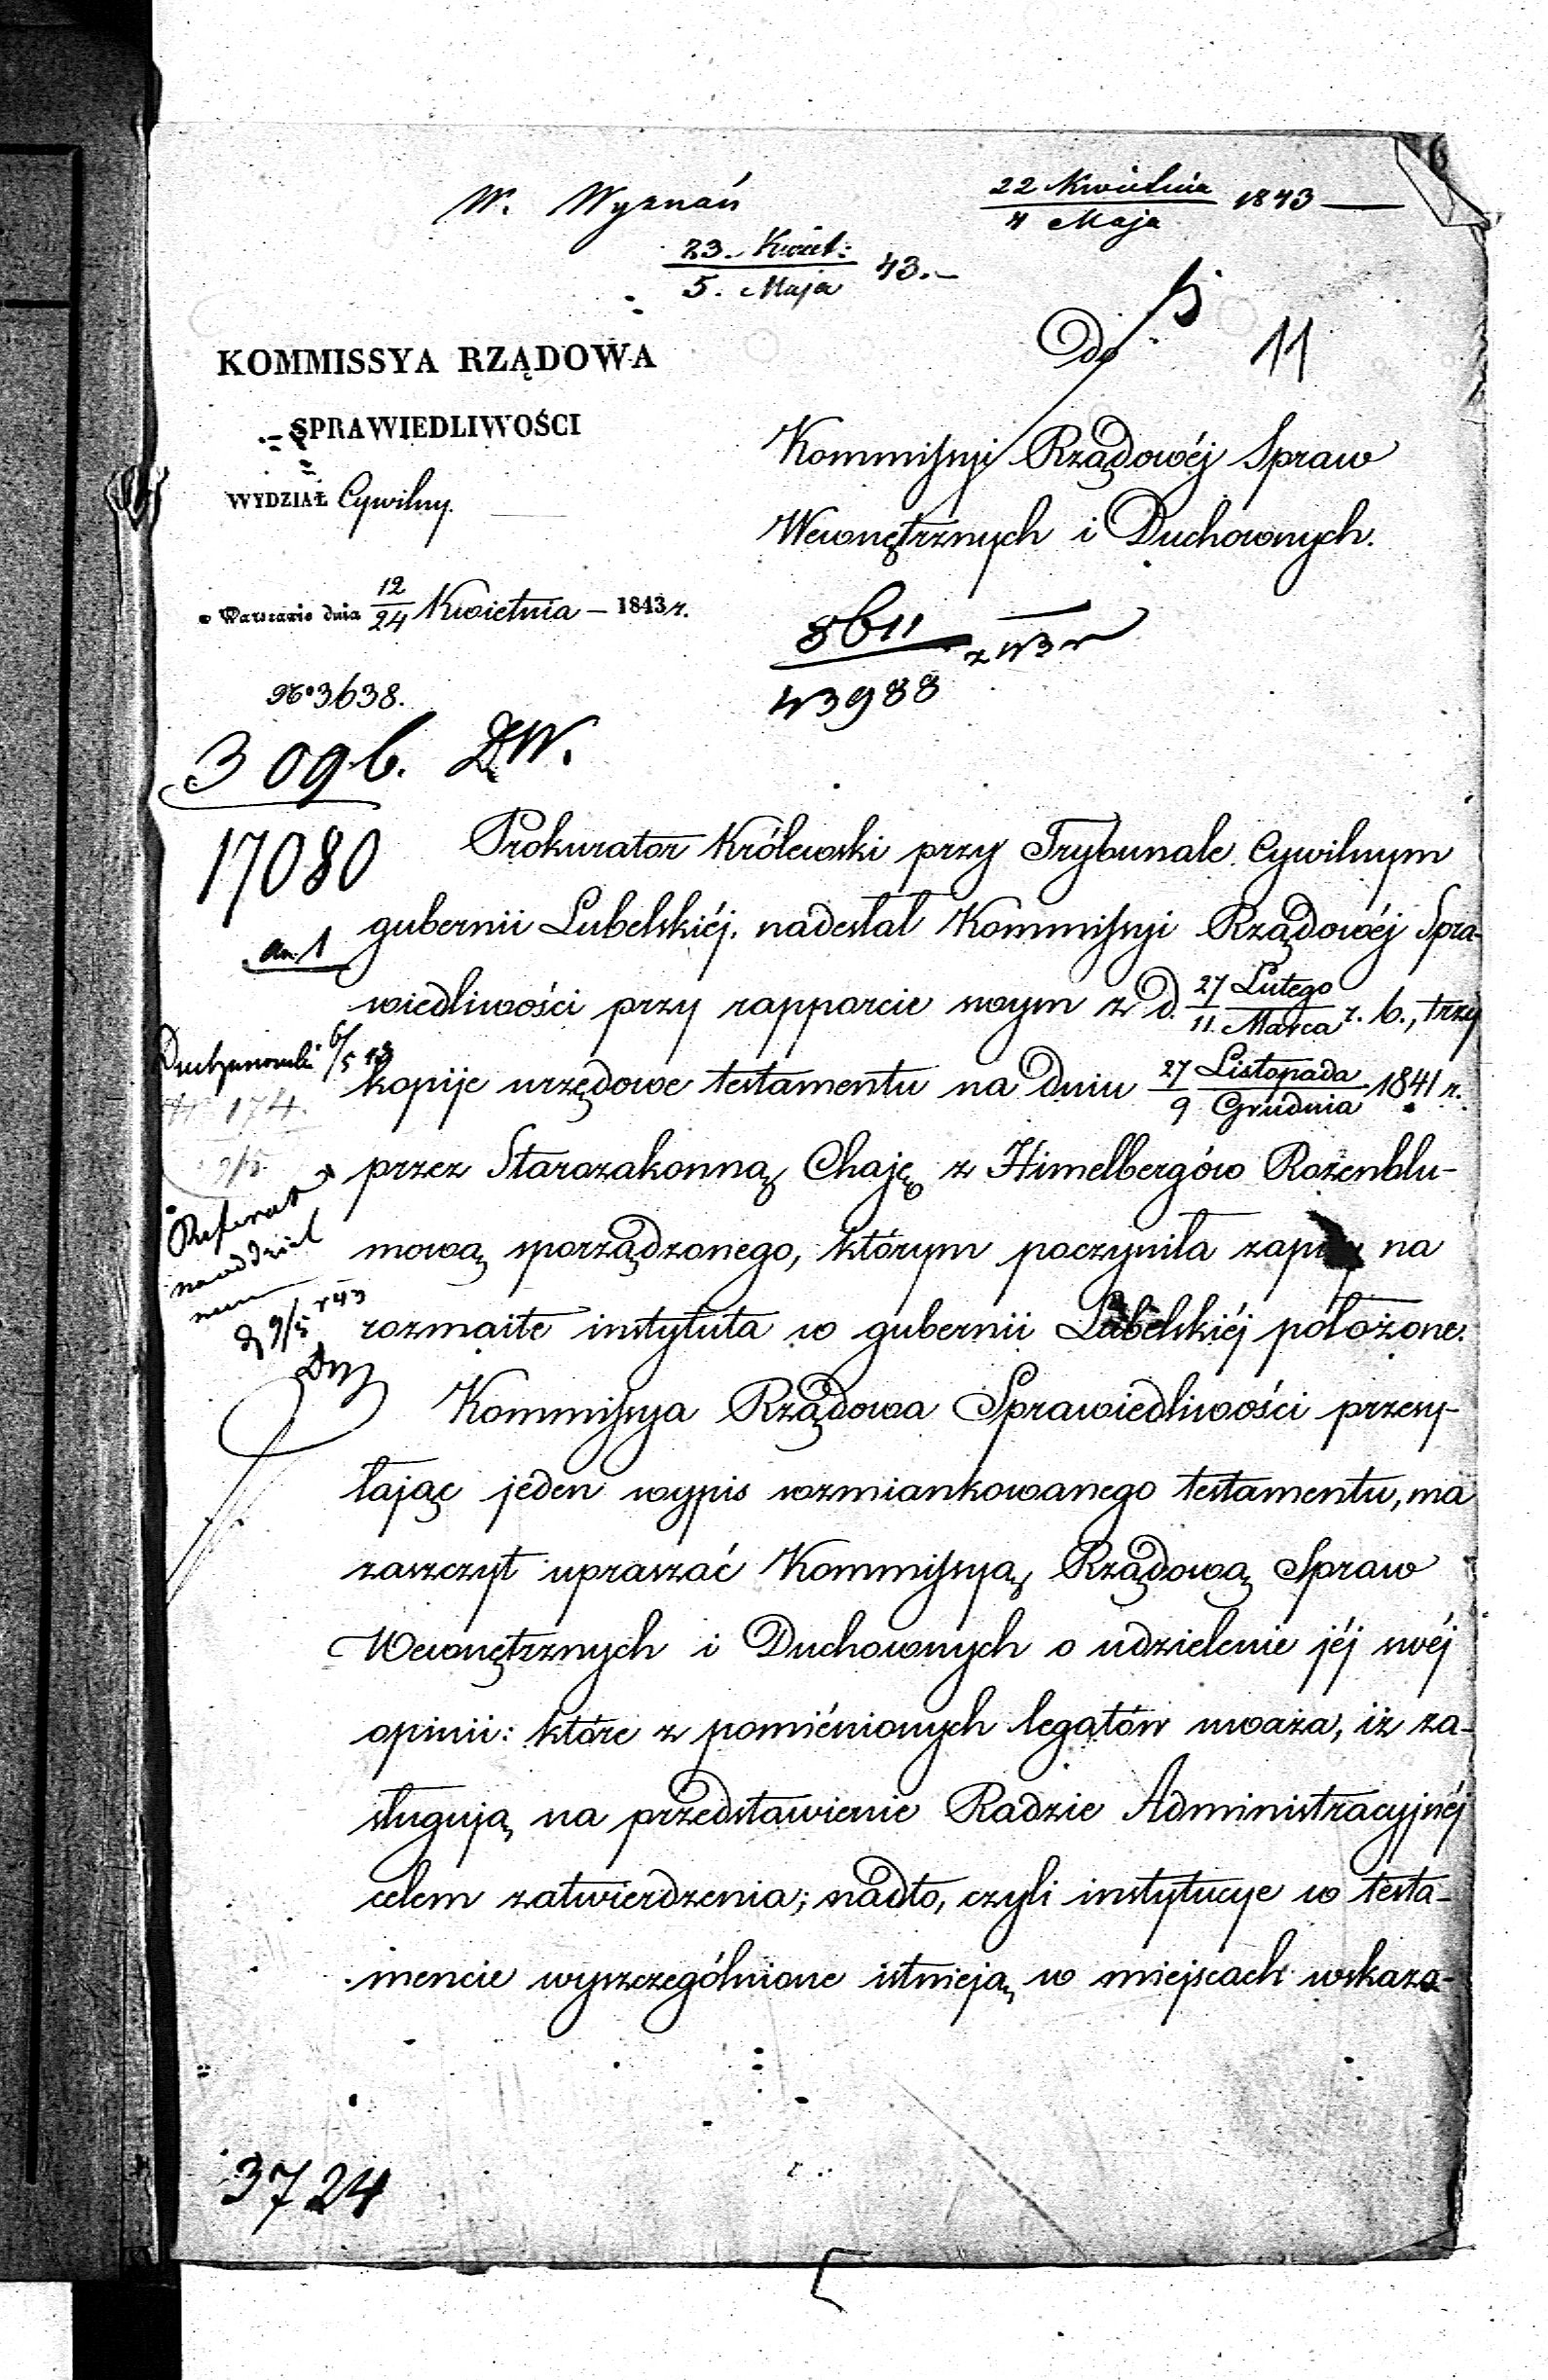 W. Wyznań
22 Kwietnia / 4 Maja 1843 —
23. Kwiet: / 5. Maja 43. —
6
KOMMISSYA RZĄDOWA
SPRAWIEDLIWOŚCI
WYDZIAŁ Cywilny.
w Warszawie dnia 12/24 Kwietnia — 1843 r.
No 3638.
3096. D.W.
17080
an. 1
Do
11
Kommissyi Rządowéj Spraw
Wewnętrznych i Duchownych.
8611 / 43988
Prokurator Królewski przy Trybunale Cywilnym
gubernii Lubelskiéj, nadesłał Kommissyi Rządowéj Spra-
wiedliwości przy rapporcie swym z d. 27 Lutego / 11. Marca r. b., trzy
kopije urzędowe testamentu na dniu 27 Listopada / 9 Grudnia 1841 r.
przez Starozakonną Chaję z Himelbergów Rozenblu-
mową sporządzonego, którym poczyniła zapisy na
rozmaite instytuta w gubernii Lubelskiéj położone.
Kommissya Rządowa Sprawiedliwości przesy-
łając jeden wypis wzmiankowanego testamentu, ma
zaszczyt upraszać Kommissyą Rządową Spraw
Wewnętrznych i Duchownych o udzielenie jéj swéj
opinii: które z pomiénionych legatów uważa, iż za-
sługują na przedstawienie Radzie Administracyjnéj
celem zatwierdzenia; nadto, czyli instytucye w testa-
mencie wyszczególnione istnieją w miejscach wskaza-
6/5 43
174.
9/5
Referat
9/5 43
3724